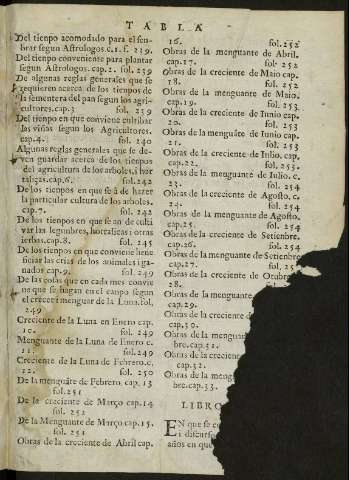 TABLA
Del tienpo acomodado para el sen-
brar segun Astrologos.c.1.f. 239.
Del tienpo conveniente para plantar
segun Astrologos. cap.2. fol. 239
De algunas reglas generales que se
requieren acerca de los tienpos de
la sementera del pan segun los agri-
cultores.cap.3 fol. 239
Del tienpo en que conviene cultibar
las viñas segun los Agricultores.
cap.4. fol. 240
Algunas reglas generales que se de-
ven guardar acerca de los tienpos
del agricultura de los arboles, i hor
talisas.cap.6. fol.242
De los tienpos en que se á de hazer
la particular cultura de los arboles.
cap.7. fol. 242
De los tienpos en que se an de culti
var las legunbres, hortalisas i otras
ierbas.cap.8. fol. 245
De los tienpos en que conviene bene
ficiar las crias de los animales i ga-
nados cap.9. fol. 249
De las cosas que en cada mes convie
ne que se hagan en el canpo segun
el crecer i menguar de la Luna.fol.
249
Creciente de la Luna en Enero cap.
10. fol. 249
Menguante de la Luna de Enero c.
11. fol.249
Creciente de la Luna de Febrero.c.
12. fol. 250
De la menguãte de Febrero. cap. 13
fol.251
De la creciente de Março cap.14
fol. 251
De la Menguante de Março cap.15.
fol. 251
Obras de la creciente de Abril cap.
16. fol.252
Obras de la menguante de Abril.
cap.17. fol. 252
Obras de la creciente de Maio cap.
18. fol.252
Obras de la menguante de Maio.
cap.19. fol. 253.
Obras de la creciente de Iunio cap.
20. fol. 253
Obras de la menguãte de Iunio cap.
21. fol. 253
Obras de la creciente de Iulio. cap.
cap.22. fol. 253.
Obras de la menguante de Iulio. c.
23. fol. 254
Obras de la creciente de Agosto. c.
24. fol. 254
Obras de la menguante de Agosto.
cap.25. fol. 254
Obras de la creciente de Setienbre.
cap.26. fol. 254
Obras de la menguante de Setienbre
cap.27. fol. 25
Obras de la creciente de Otubre
28.
Obras de la menguante
cap.29.
Obras de la creciente
cap.30.
Obras de la menguan
bre.cap.31.
Obras de la creciente
bre cap.32.
Obras de la meng
bre.cap.33.
LIBRO
EN que se c
i discurs
años en que